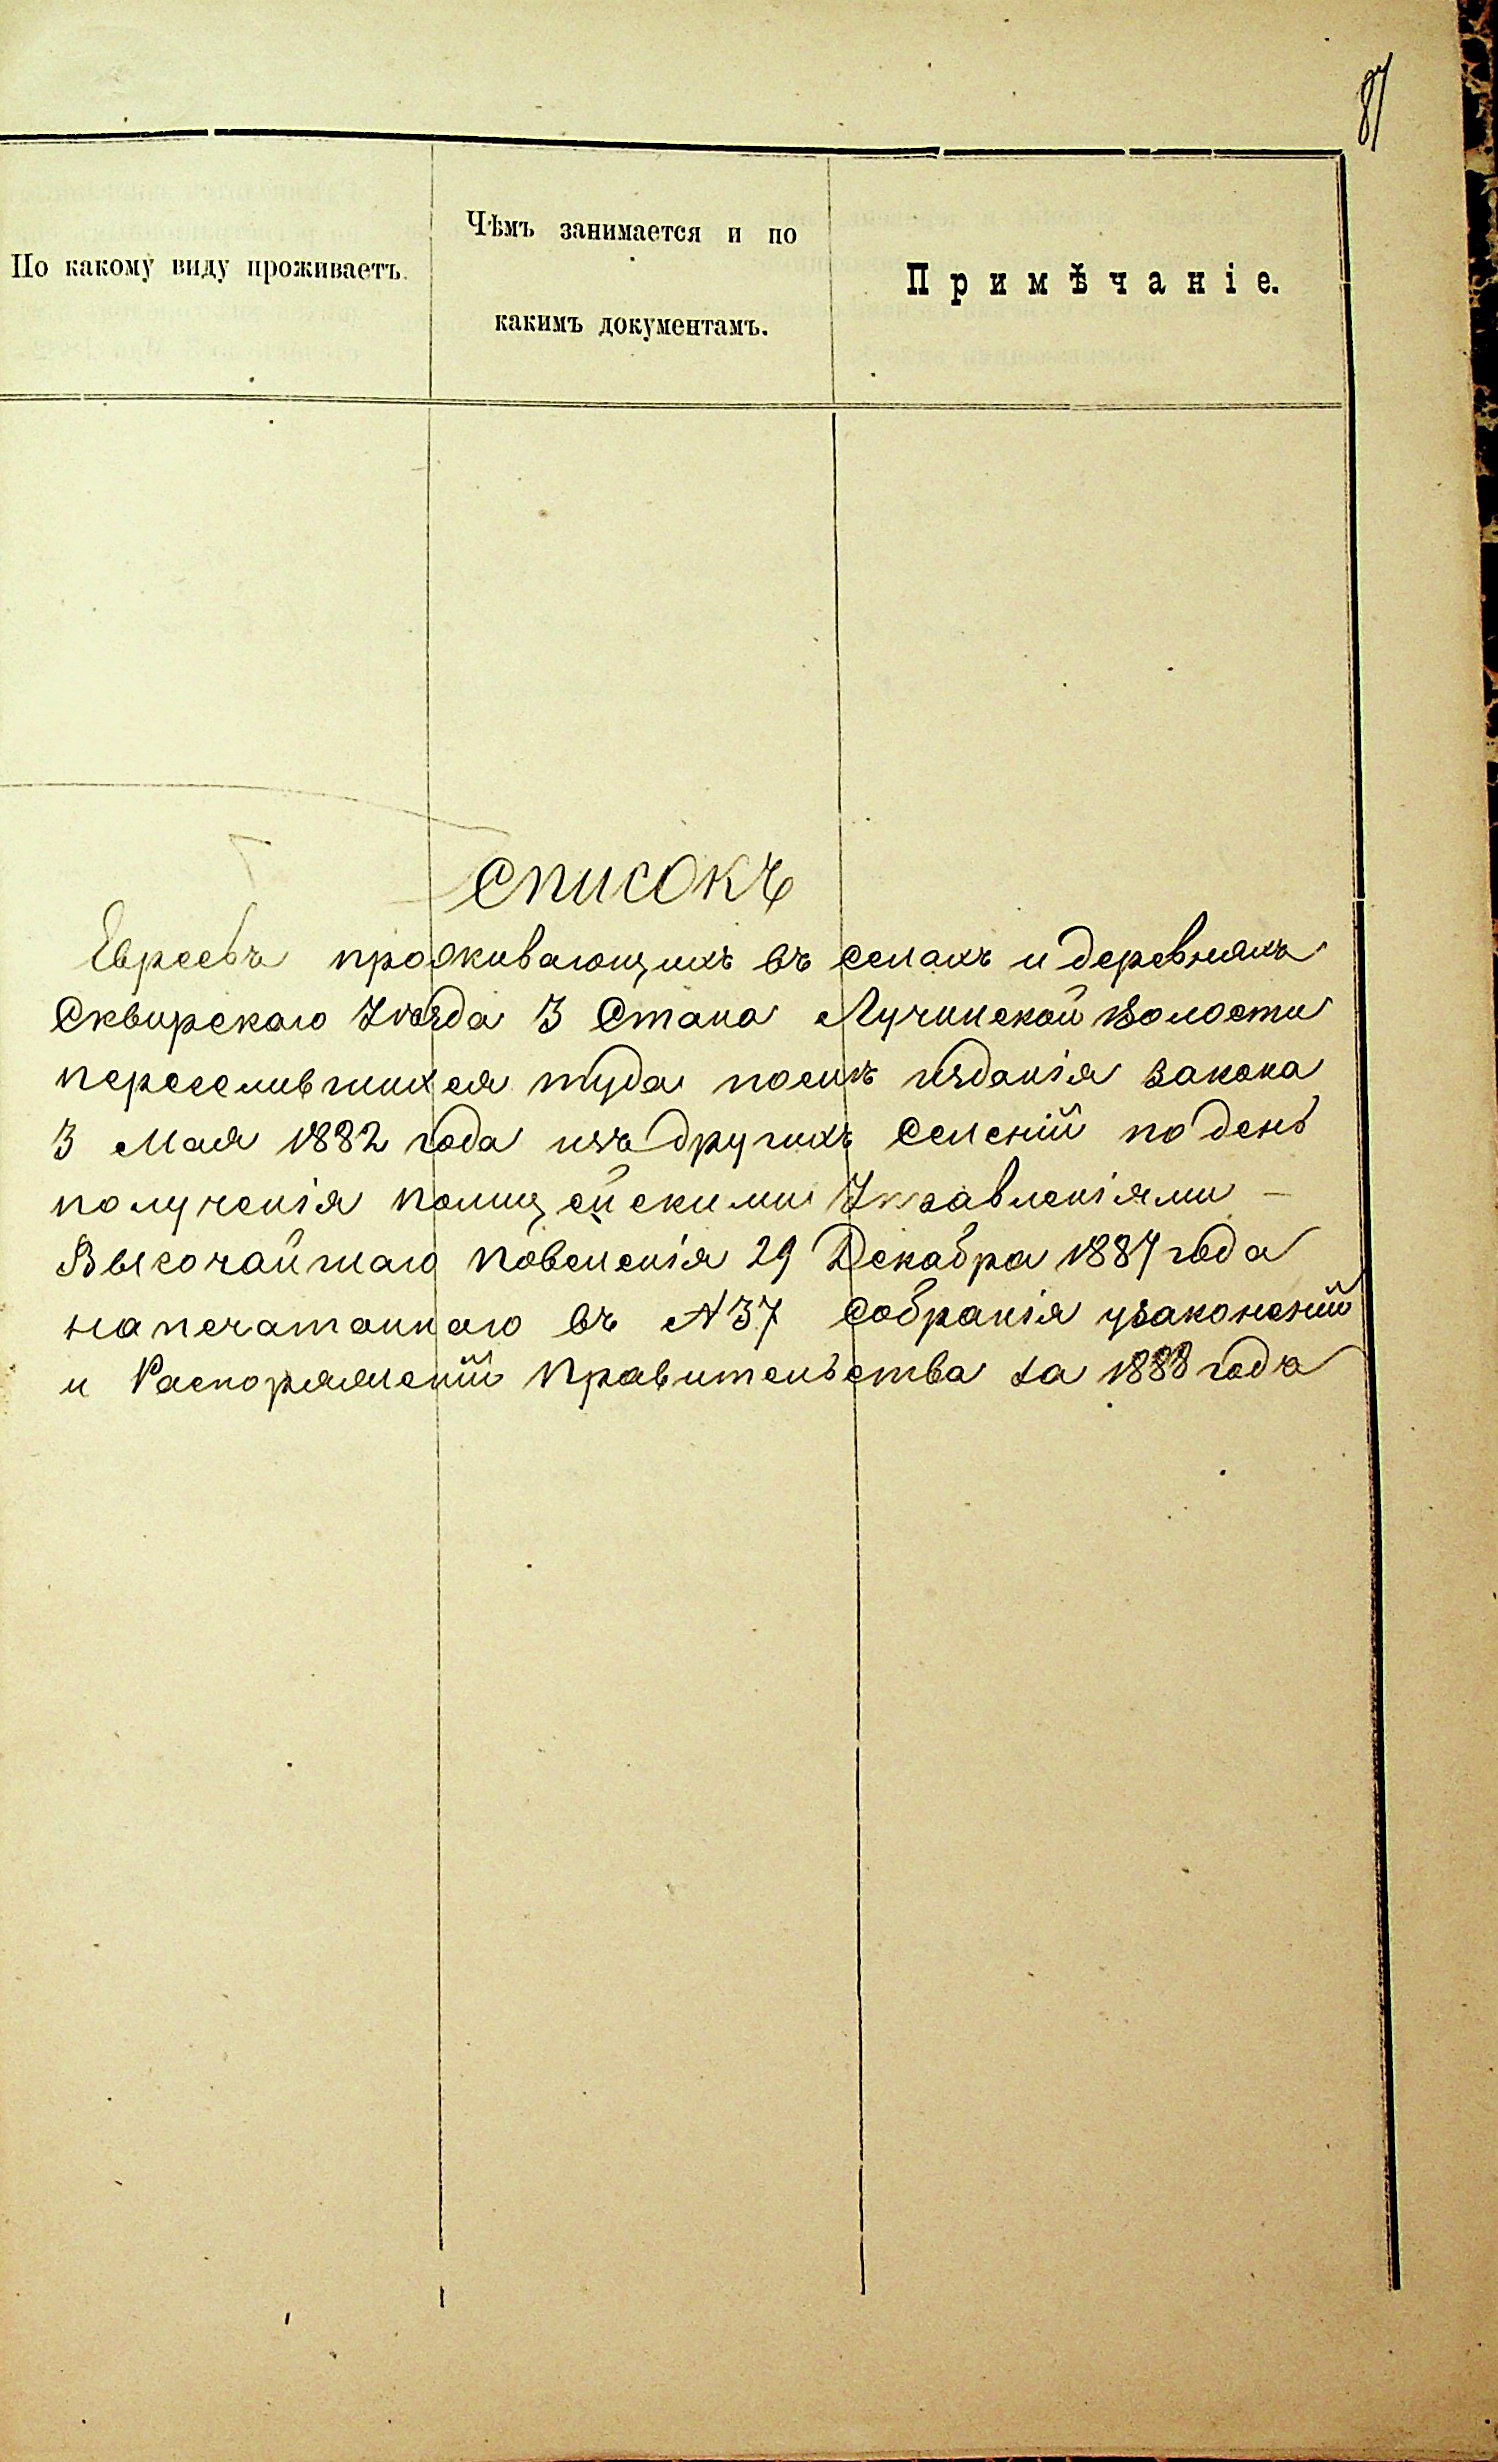 87
По какому виду проживаетъ.
Чѣмъ занимается и по
какимъ документамъ.
Примѣчаніе.
Списокъ
Евреевъ проживающихъ въ селахъ и деревняхъ
Сквирскаго Уѣзда 3 Стана Лучинской Волости
переселившихся туда послѣ изданія закона
3 Мая 1882 года изъ другихъ селеній по день
полученія полицейскими Управленіями –
Высочайшаго повеленія 29 Декабря 1887 года
напечатаннаго въ № 37 Собранія узаконеній
и Распоряженій Правительства за 1888 годъ